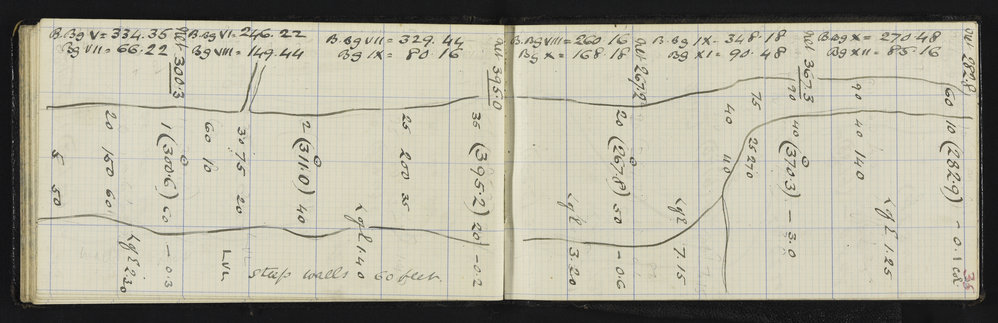 B. Bg V = 334.35 B. Bg VI = 246.22 B. Bg VII = 329.44
Bg VII = 66.22 Bg VIII = 149.44 Bg IX = 80.16
B. Bg VIII = 260.16 B. Bg IX = 348.18 B. Bg X = 270.48
Bg X = 168.18 Bg XI = 90.48 Bg XII = 85.16
300.3
395.0
267.2
367.3
282.8
5 50
20 150 60
< gl 230
1 (300.6) 60 - 0.3
60 10
30 75 20
LVL
2 (311.0) 40
< gl 140
25 200 35
35 (395.2) 20 - 0.2
steep walls 60 feet
< gl 3.20
20 (267.8) 50 - 0.6
< gl 7.15
40 110
75 25 270
90 40 (370.3) - 3.0
90 40 140
< gl 1.25
60 10 (282.9) - 0.1
35